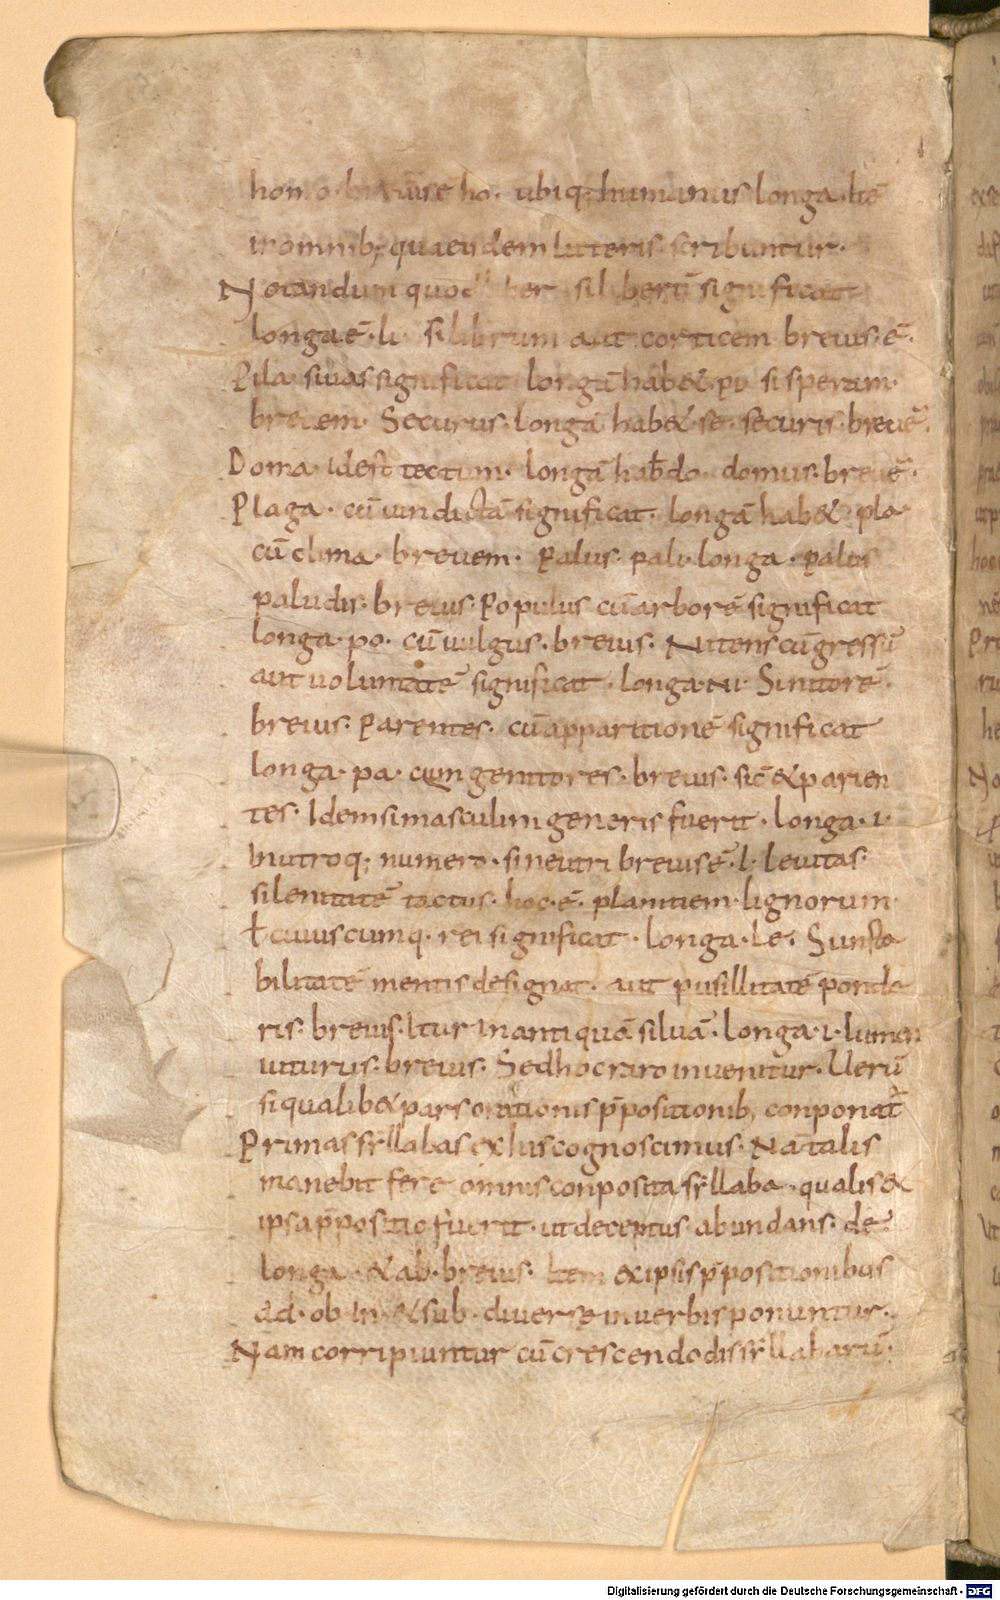 homo · breuis ē ho · ubiq; humanus longa · hec
in omnib; quae eisdem litteris scribuntur ·
Notandum quod liber si liberū significat
longa ē · li · si librum aut corticem breuis · ē ·
Pila · si uas significat longā hab& pi · si speram ·
breuem · Securus · longā hab& · se · securis · breuē ·
Doma · id est tectum · longā hab̄ do · domus · breuē ·
Plaga · cū uindictā significat · longā hab& pla ·
cū clima · breuem · Palus · pali · longa · palus
paludis · breuis · Populus cū arborē significat
longa · po · cū uulgus · breuis · Nitens cū gressū
aut voluntatē significat · longa · ni · Si nitorē ·
breuis · Parentes · cū apparitionē significat
longa · pa · cum genitores · breuis · sic & parien
tes · Idem si masculini generis fuerit · longa · i ·
in utroq; numero · si neutri breuis ē · l · Leuitas ·
si lenitatē tactus · hoc · ē · planitiem · lignorum ·
ł cuiuscumq · rei significat · longa · Le · Si insta
bilitatē mentis designat · aut pusillitatē ponde
ris · breuis · Itur in antiquā siluā · longa · i · lumen
iturus · breuis · Sed hoc raro inuenitur · Uerū
si qualib& pars orationis p̄positionib; conponat̄
Primas syllabas ex his cognoscimus · Na talis
manebit fere omnis conposita syllaba · qualis &
ipsa p̄positio fuerit · ut deceptus · abundans · de
longa · & ab · breuis · Item ex ipsis p̄positionibus
ad · ob · in · & sub · diuerse in uerbis ponuntur ·
Nam corripiuntur cū crescendo dissyllabarū ·
Digitalisierung gefördert durch die Deutsche Forschungsgemeinschaft - DFG